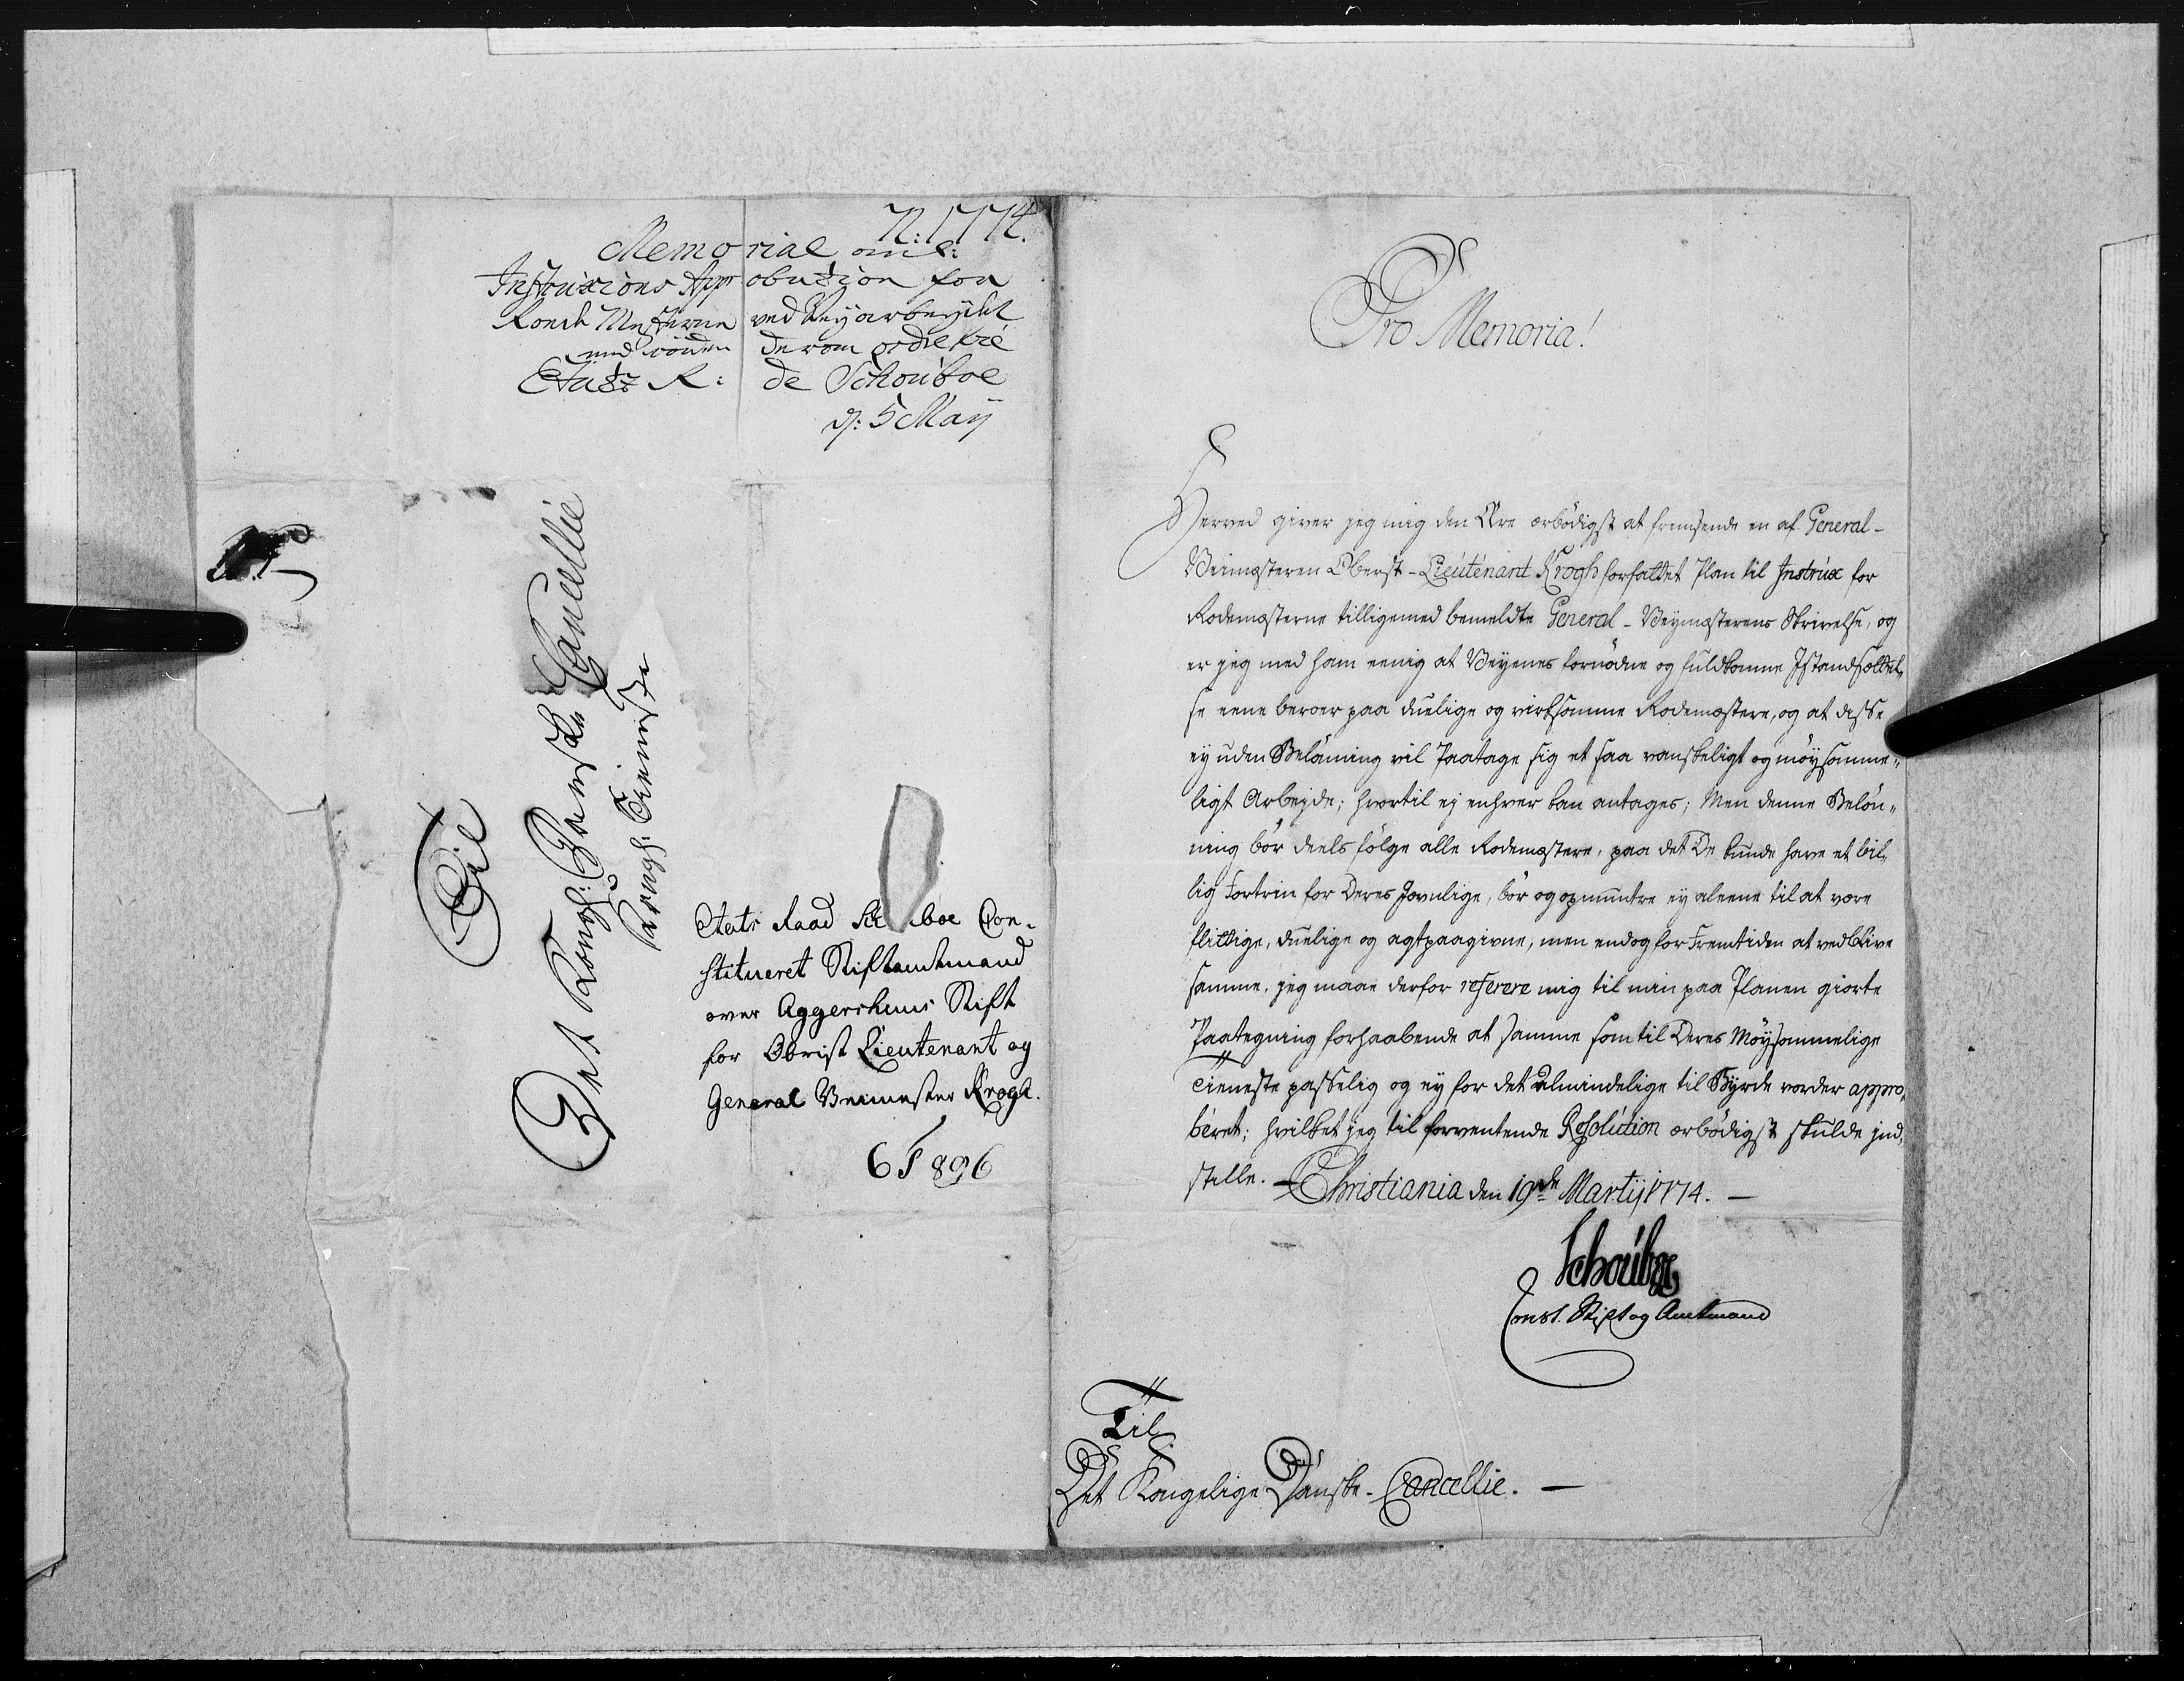 N: 1774.
Memorial
Instruxions Approbation for
Rode Mesterne ved Veyarbeydet
derom
Etatz R: de Schouboe
d: 5 May
Til
Det Kongl: Danske Cancellie
Kongl: Tieneste
Etats Raad Schouboe Con-
stitueret Stiftamtmand
over Aggershuus Stift
for Obrist Lieutenant og
General Veimester Krogh.
6 896
Pro Memoria!
Herved giver jeg mig den Ære ærbødigst at fremsende en af General-
Veimesteren Oberst-Lieutenant Krogh forfattet Plan til Instrux for
Rodemesterne tilligemed bemeldte General-Veymesterens Skrivelse, og
er jeg med ham eenig at Veyenes fornødne og fuldkomne Istandsættel,,
se eene beroer paa duelige og virksomme Rodemestere, og at disse
ey uden Belønning vil Paatage sig et saa vanskeligt og møysomme,,
ligt Arbejde; hvortil ej enhver kan antages; Men denne Beløn,,
ning bør deels følge alle Rodemestere, paa det De kunde have et bil,,
lig Fortrin for Deres Jevnlige, bør og opmuntre ey aleene til at være
flittige, duelige og agtpaagivne, men endog for Fremtiden at vedblive
samme, jeg maae derfor referere mig til min paa Planen giorte
Paategning forhaabende at samme som til Deres Møysommelige
Tieneste passelig og ey for det almindelige til Byrde vorder appro,,
beret; hvilket jeg til forventende Resolution ærbødigst skulde ind,,
stille. — Christiania den 19de Martij 1774. —
Schouboe
Const. Stift og Amtmand
Til
Det Kongelige Danske Cancellie. —